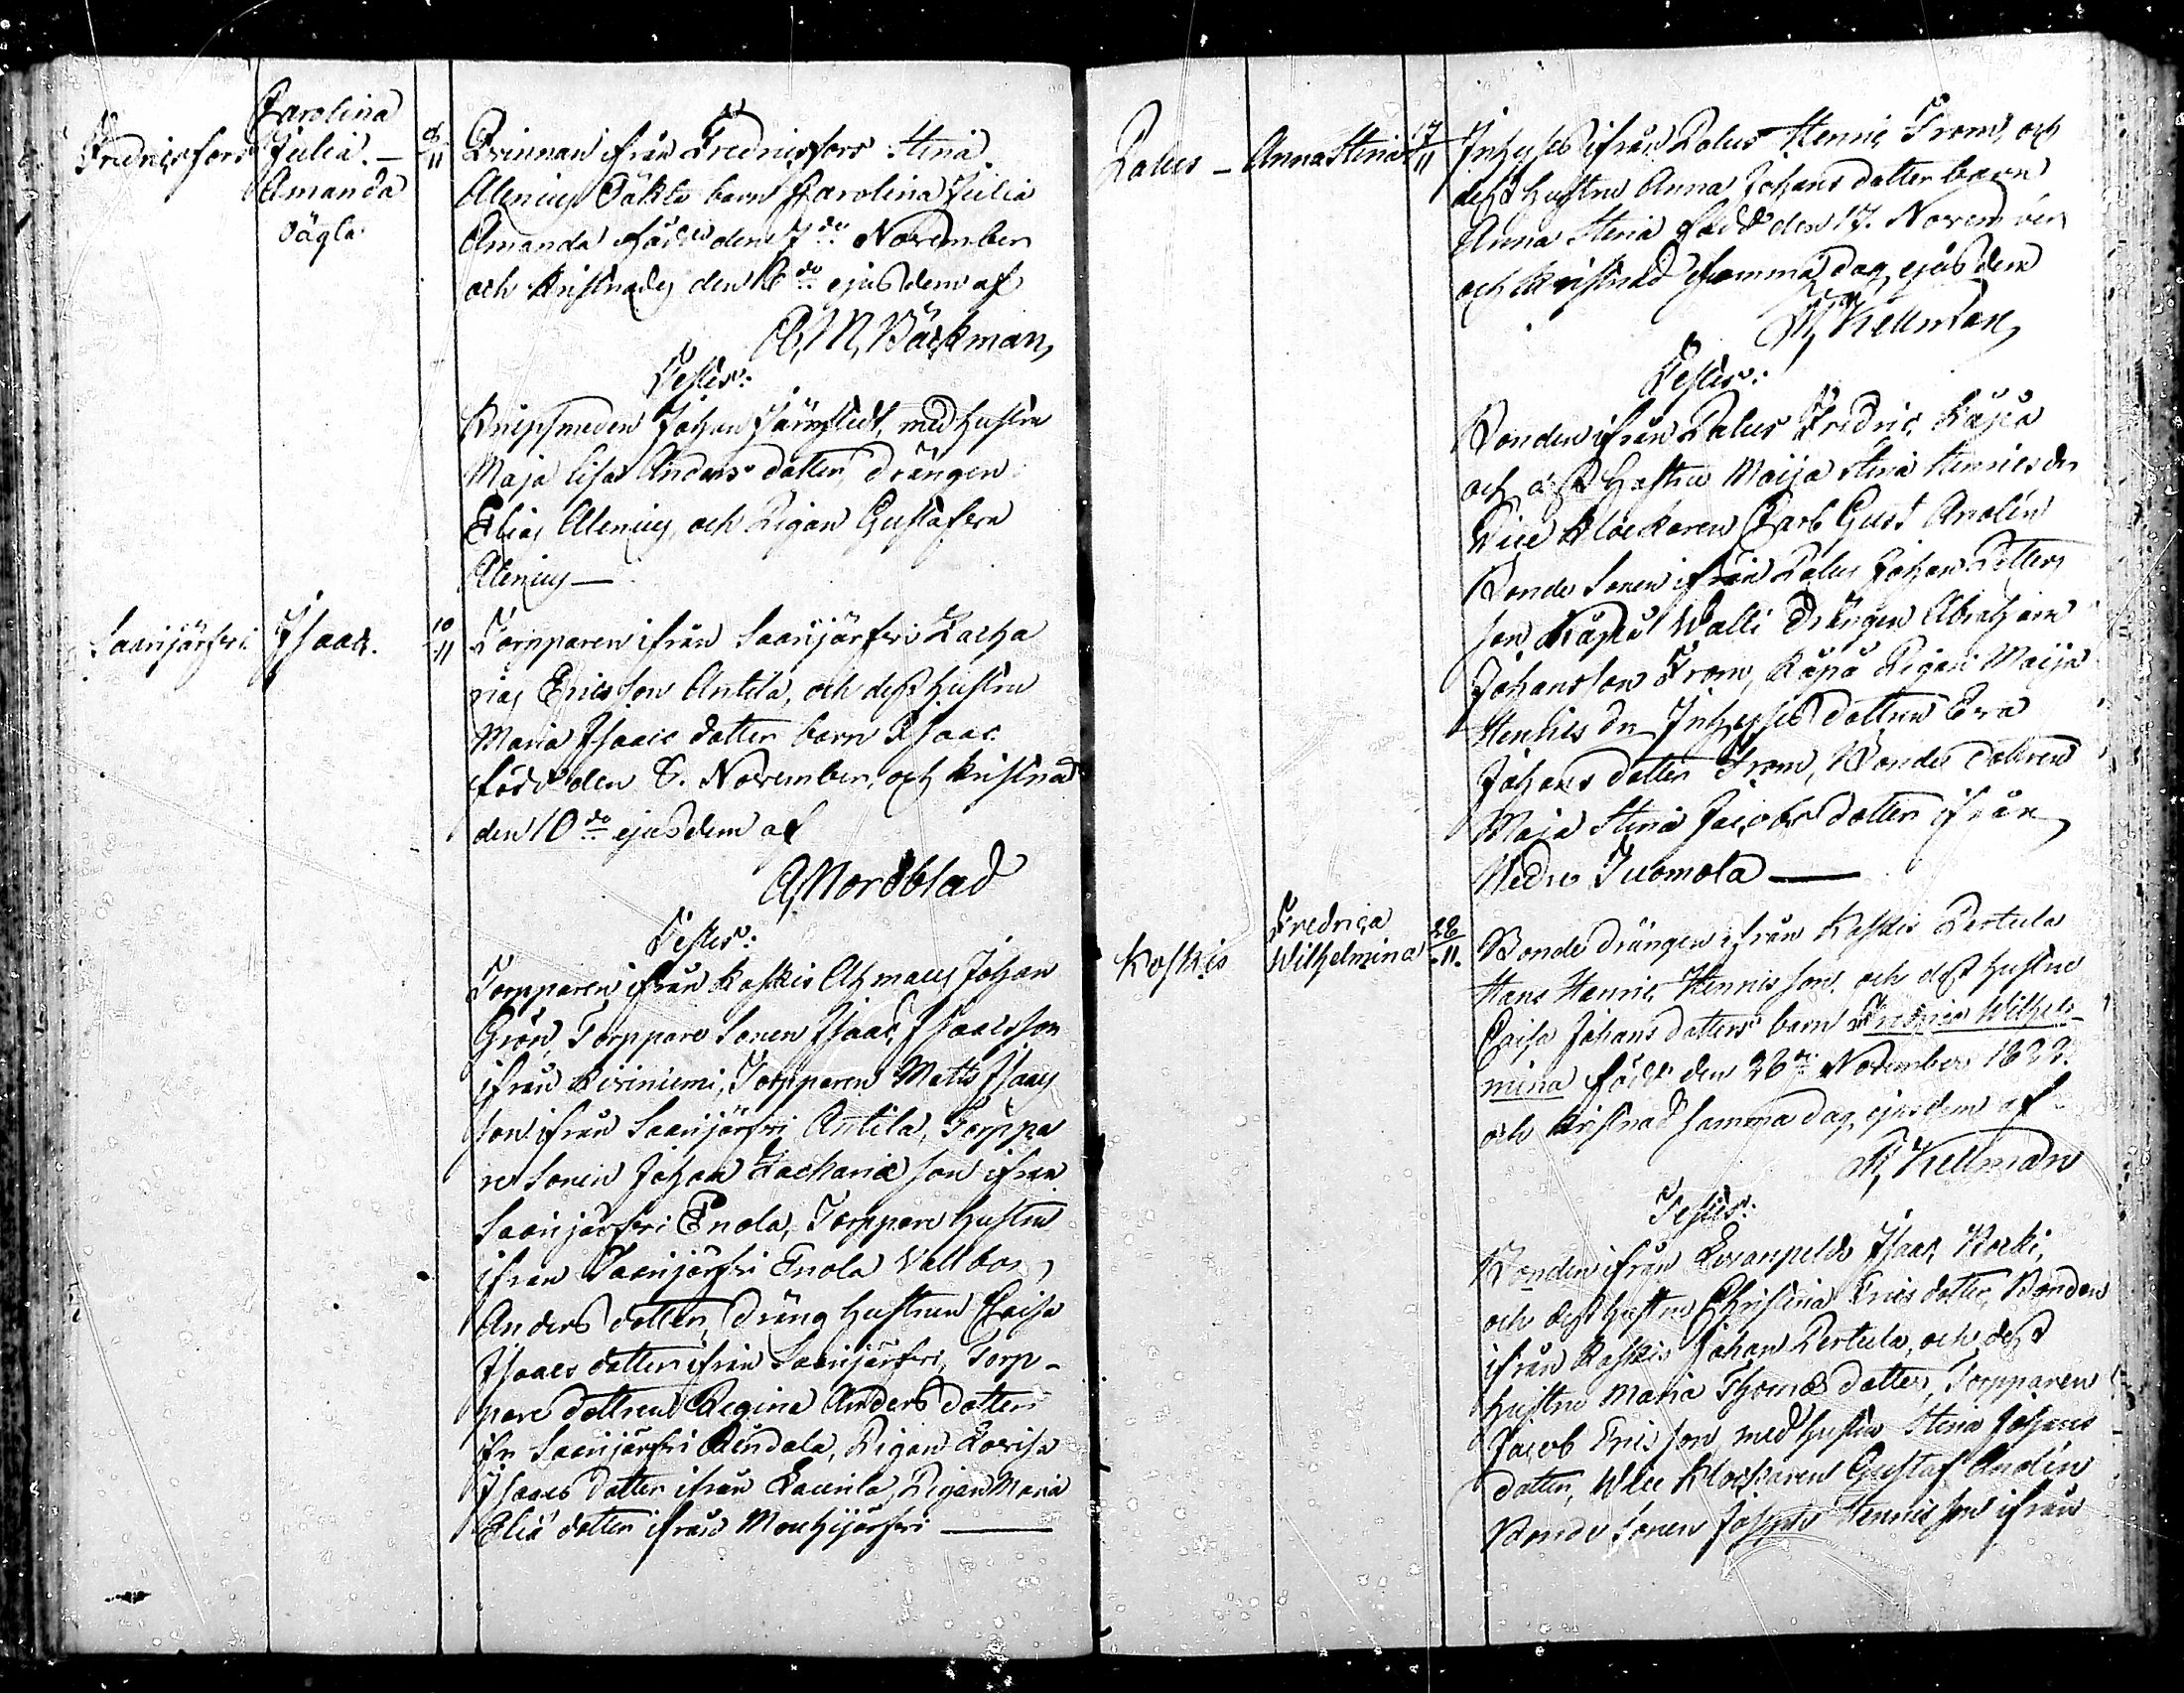 Carolina
Fredricsfors Julia. — 8/11 Qvinnan ifrån Fredricsfors Stina
Amanda Alenius Oäkta barn Carolina Julia
oägta Amanda född den 7de November
och kristnades den 8de ejusdem af
A. M. Bäckman,
Testes:
Knipsmeden Johan Järnstedt, med hustru
Maja Lisa Anders dotter, drängen
Elias Alenius, och Pigan Gustafva
Alenius —
Saarijärfvi Isaac. 10/11 Torpparen ifrån Saarijärfvi Zacha
rias Ericsson Antila, och dess hustru
Maria Isaacs dotter barn Isaac
född den 8. November, och kristnad
den 10de ejusdem af
A, Nordblad
Testes:
Torpparen ifrån Koskis Johan
Grön, Torppare Sonen Isaac Isaacsson
ifrån Kiviniemi, Torpparen Matts Isaacs
son ifrån Saarijärfvi Antila, Torppa
re Sonen Johan Zachariæ son ifrån
Saarijärfvi Enola, Torppare hustru
ifrån Saarijärfvi Enola Vallbor
Anders dotter, dräng hustrun Caisa
Isaacs dotter ifrån Saarijärfvi, Torp-
pare dottren Regina Anders dotter
ifr Saarijärfvi Pigan Lovisa
Isaacs dotter ifrån Laurila, Pigan Maria
Eliæ dotter ifrån Mouhijärfvi —
Palus — Anna Stina 17/11 Inhyses ifrån Palus Henric From, och
dess hustru Anna Johans dotter barn
Anna Stina född den 17. November
och kristnad samma dag ejusdem
Kellman
Testes:
Bonden ifrån Palus Fredric Käpä
och dess hustru Maija Stina Henricsdr
Vice Klockaren Carl Gust Anolin
Bonde Sonen ifrån Palus Johan Petters
son Käpä Walli Drängen Abraham
Johansson From, Käpä Pigan Maija
Henrics dr Inhyses dottren Eva
Johans dotter From, Bonde dottren
Maja Stina Jacobs dotter ifrån
Nedre Tuomola —
Fredrica
Koskis Wilhelmina 26/11. Bonde drängen ifrån Koskis Pertula
Hans Henric Henricsson och dess hustru
Caisa Johans dotters barn Fredrica Wilhel-
mina född den 26de November 1822.
och kristnad samma dag, ejusdem af
Kellman
Testes:
Bonden ifrån Isaac
och dess hustru Christina Erics dotter, Bonden
ifrån Koskis Johan Pertula, och dess
hustru Maria Thomæ dotter, Torpparen
Jacob Ericsson med hustru Stina Johans
dotter, Vice Klockaren Gustaf Anolin
Bonde Sonen Johan Henricsson ifrån